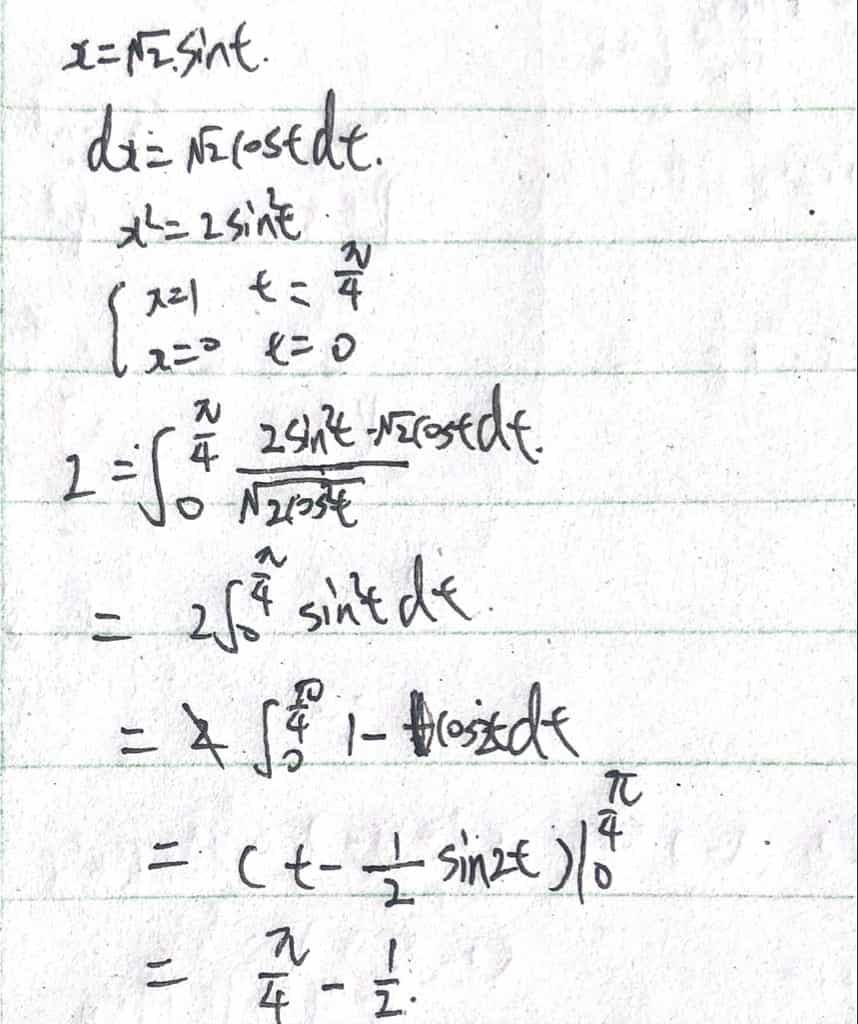 x=√2.sint.
dx=√2costdt.
x²=2sin²t
{ x=1 t=π/4
x=0 t=0
I=∫₀^(π/4) (2sin²t·√2costdt)/√(2cos²t)
= 2∫₀^(π/4) sin²t dt.
= ∫₀^(π/4) 1-cos2tdt
= (t-1/2 sin2t)|₀^(π/4)
= π/4 - 1/2.